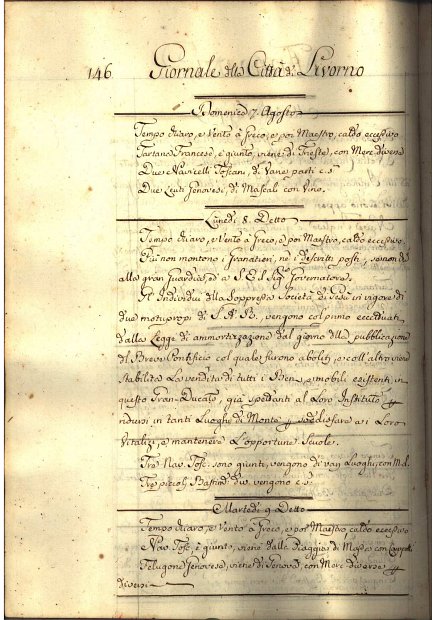 146 Giornale della Città di Livorno
Domenica 7. Agosto
Tempo chiaro, e Vento à Greco, e poi Maestro, caldo eccessivo
Tartana Francese, è giunta, viene di Trieste, con Merc. diverse
Due Navicelli Toscani, di Varie parti c. s.
Due Leuti Genovesi, di Mascali con Vino.
Lunedì 8. Detto
Tempo chiaro, e Vento à Greco, e poi Maestro, caldo eccessivo.
Più non montono i Granatieri, ne i posti,
alla gran Guardia, e a S. E. il Sig.r Governatore.
Gl' Individui della Soppressa Società di Gesù in vigore di
due motupropi di S. A. R. vengono col primo eccettuati
dalla Legge di ammortizazione dal giorno della pubblicazione
del Breve Pontificio col quale furono aboliti, e coll' altro viene
stabilita La vendita di tutti i Beni, e mobili esistenti in
questo Gran-Ducato, già spettanti al Loro Instituto
ridursi in tanti Luoghi di Monte soddisfare ai Loro
Vitalizi, e mantenere L'opportune Scuole.
Tre Nav. Tosc. sono giunti, vengono di vari Luoghi, con M. d.
Tre piccoli vengono c. s.
Martedì 9 Detto
Tempo chiaro, e Vento à Greco, e poi Maestro, caldo eccessivo
Nav. Tosc. è giunto, viene dalle Piaggie di Massa con
Felugone Genovese, viene di Genova, con Merc. diverse
diversi